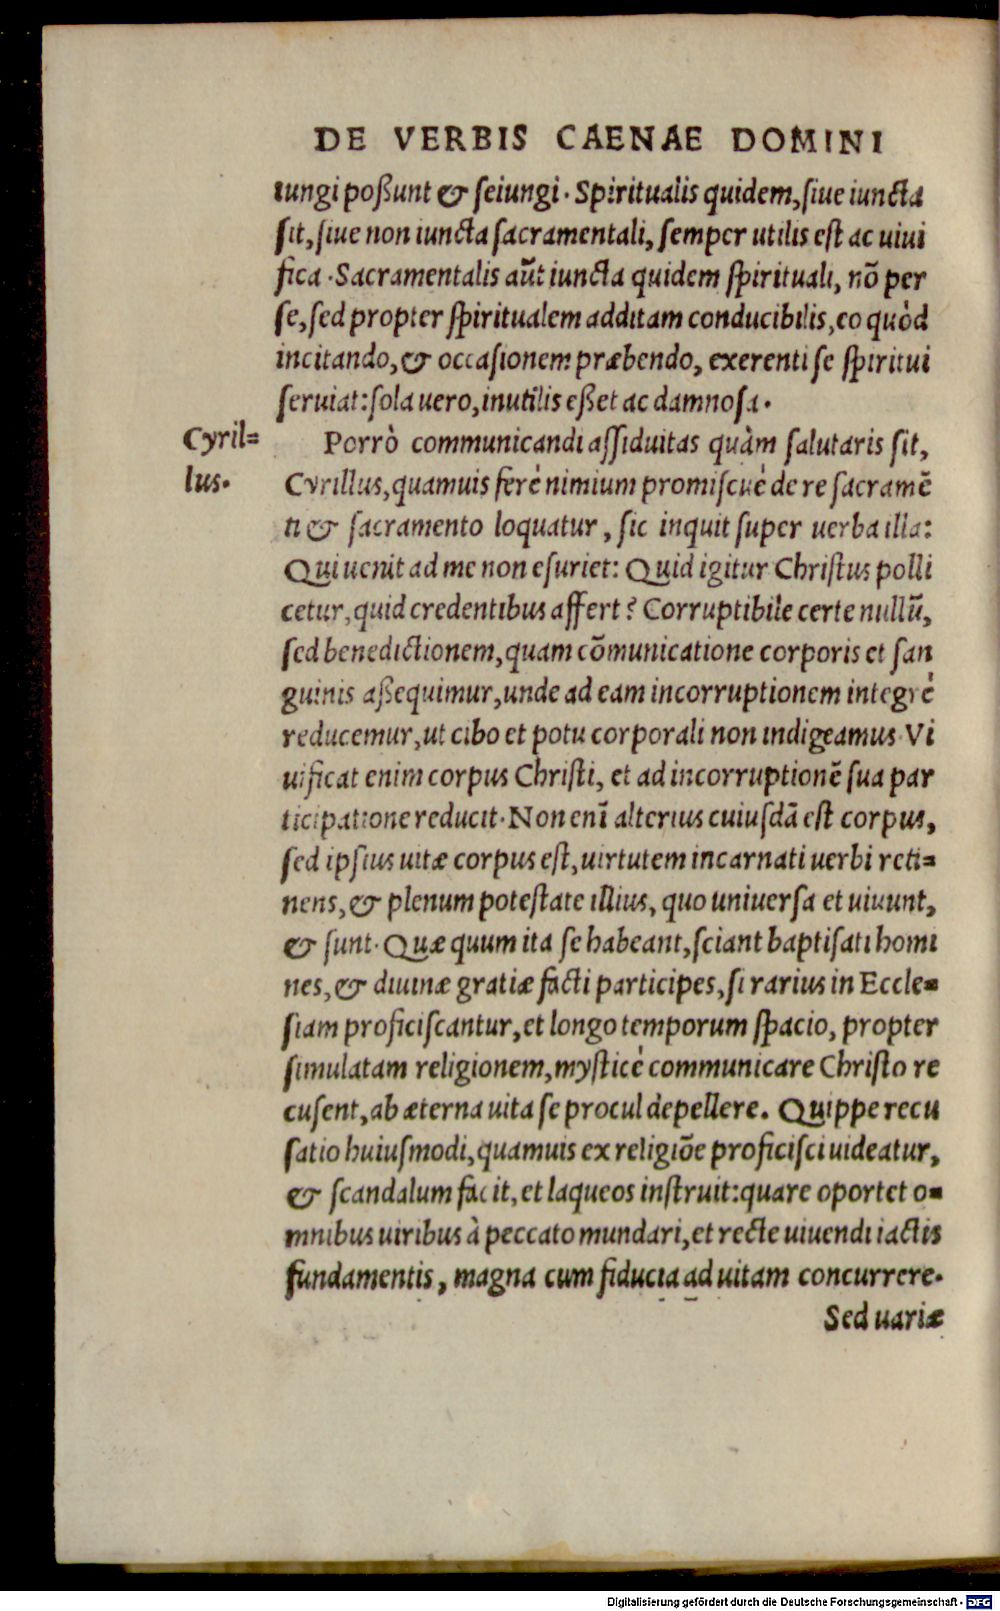 DE VERBIS CAENAE DOMINI
iungi poßunt & seiungi. Spiritualis quidem, siue iuncta
sit, siue non iuncta sacramentali, semper utilis est ac uiui
fica. Sacramentalis aūt iuncta quidem spirituali, nō per
se, sed propter spiritualem additam conducibilis, eo quòd
incitando, & occasionem præbendo, exerenti se spiritui
seruiat: sola uero, inutilis eßet ac damnosa.
Cyril=
lus.
Porrò communicandi assiduitas quàm salutaris sit,
Cyrillus, quamuis ferè nimium promiscuè de re sacramē
ti & sacramento loquatur, sic inquit super uerba illa:
Qui uenit ad me non esuriet: Quid igitur Christus polli
cetur, quid credentibus affert? Corruptibile certe nullū,
sed benedictionem, quam cōmunicatione corporis et san
guinis aßequimur, unde ad eam incorruptionem integrè
reducemur, ut cibo et potu corporali non indigeamus. Vi
uificat enim corpus Christi, et ad incorruptionē sua par
ticipatione reducit. Non enī alterius cuiusdā est corpus,
sed ipsius uitæ corpus est, uirtutem incarnati uerbi reti=
nens, & plenum potestate illius, quo uniuersa et uiuunt,
& sunt. Quæ quum ita se habeant, sciant baptisati homi
nes, & diuinæ gratiæ facti participes, si rarius in Eccle=
siam proficiscantur, et longo temporum spacio, propter
simulatam religionem, mysticè communicare Christo re
cusent, ab æterna uita se procul depellere. Quippe recu
satio huiusmodi, quamuis ex religiōe proficisci uideatur,
& scandalum facit, et laqueos instruit: quare oportet o=
mnibus uiribus à peccato mundari, et recte uiuendi iactis
fundamentis, magna cum fiducia ad uitam concurrere.
Sed uariæ
Digitalisierung gefördert durch die Deutsche Forschungsgemeinschaft - DFG